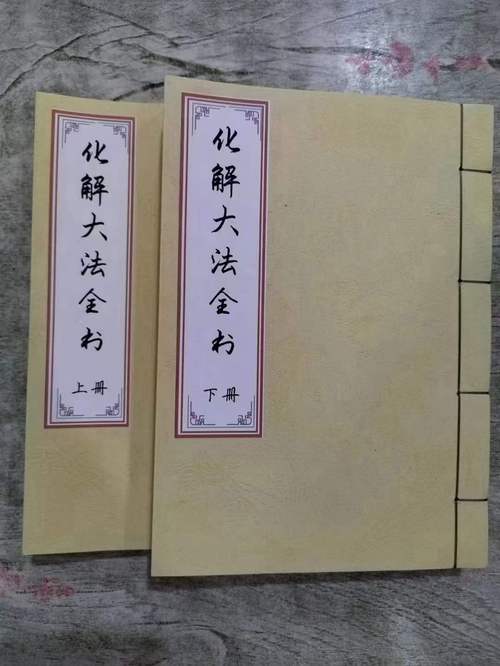 化解大法全书
上册
化解大法全书
下册